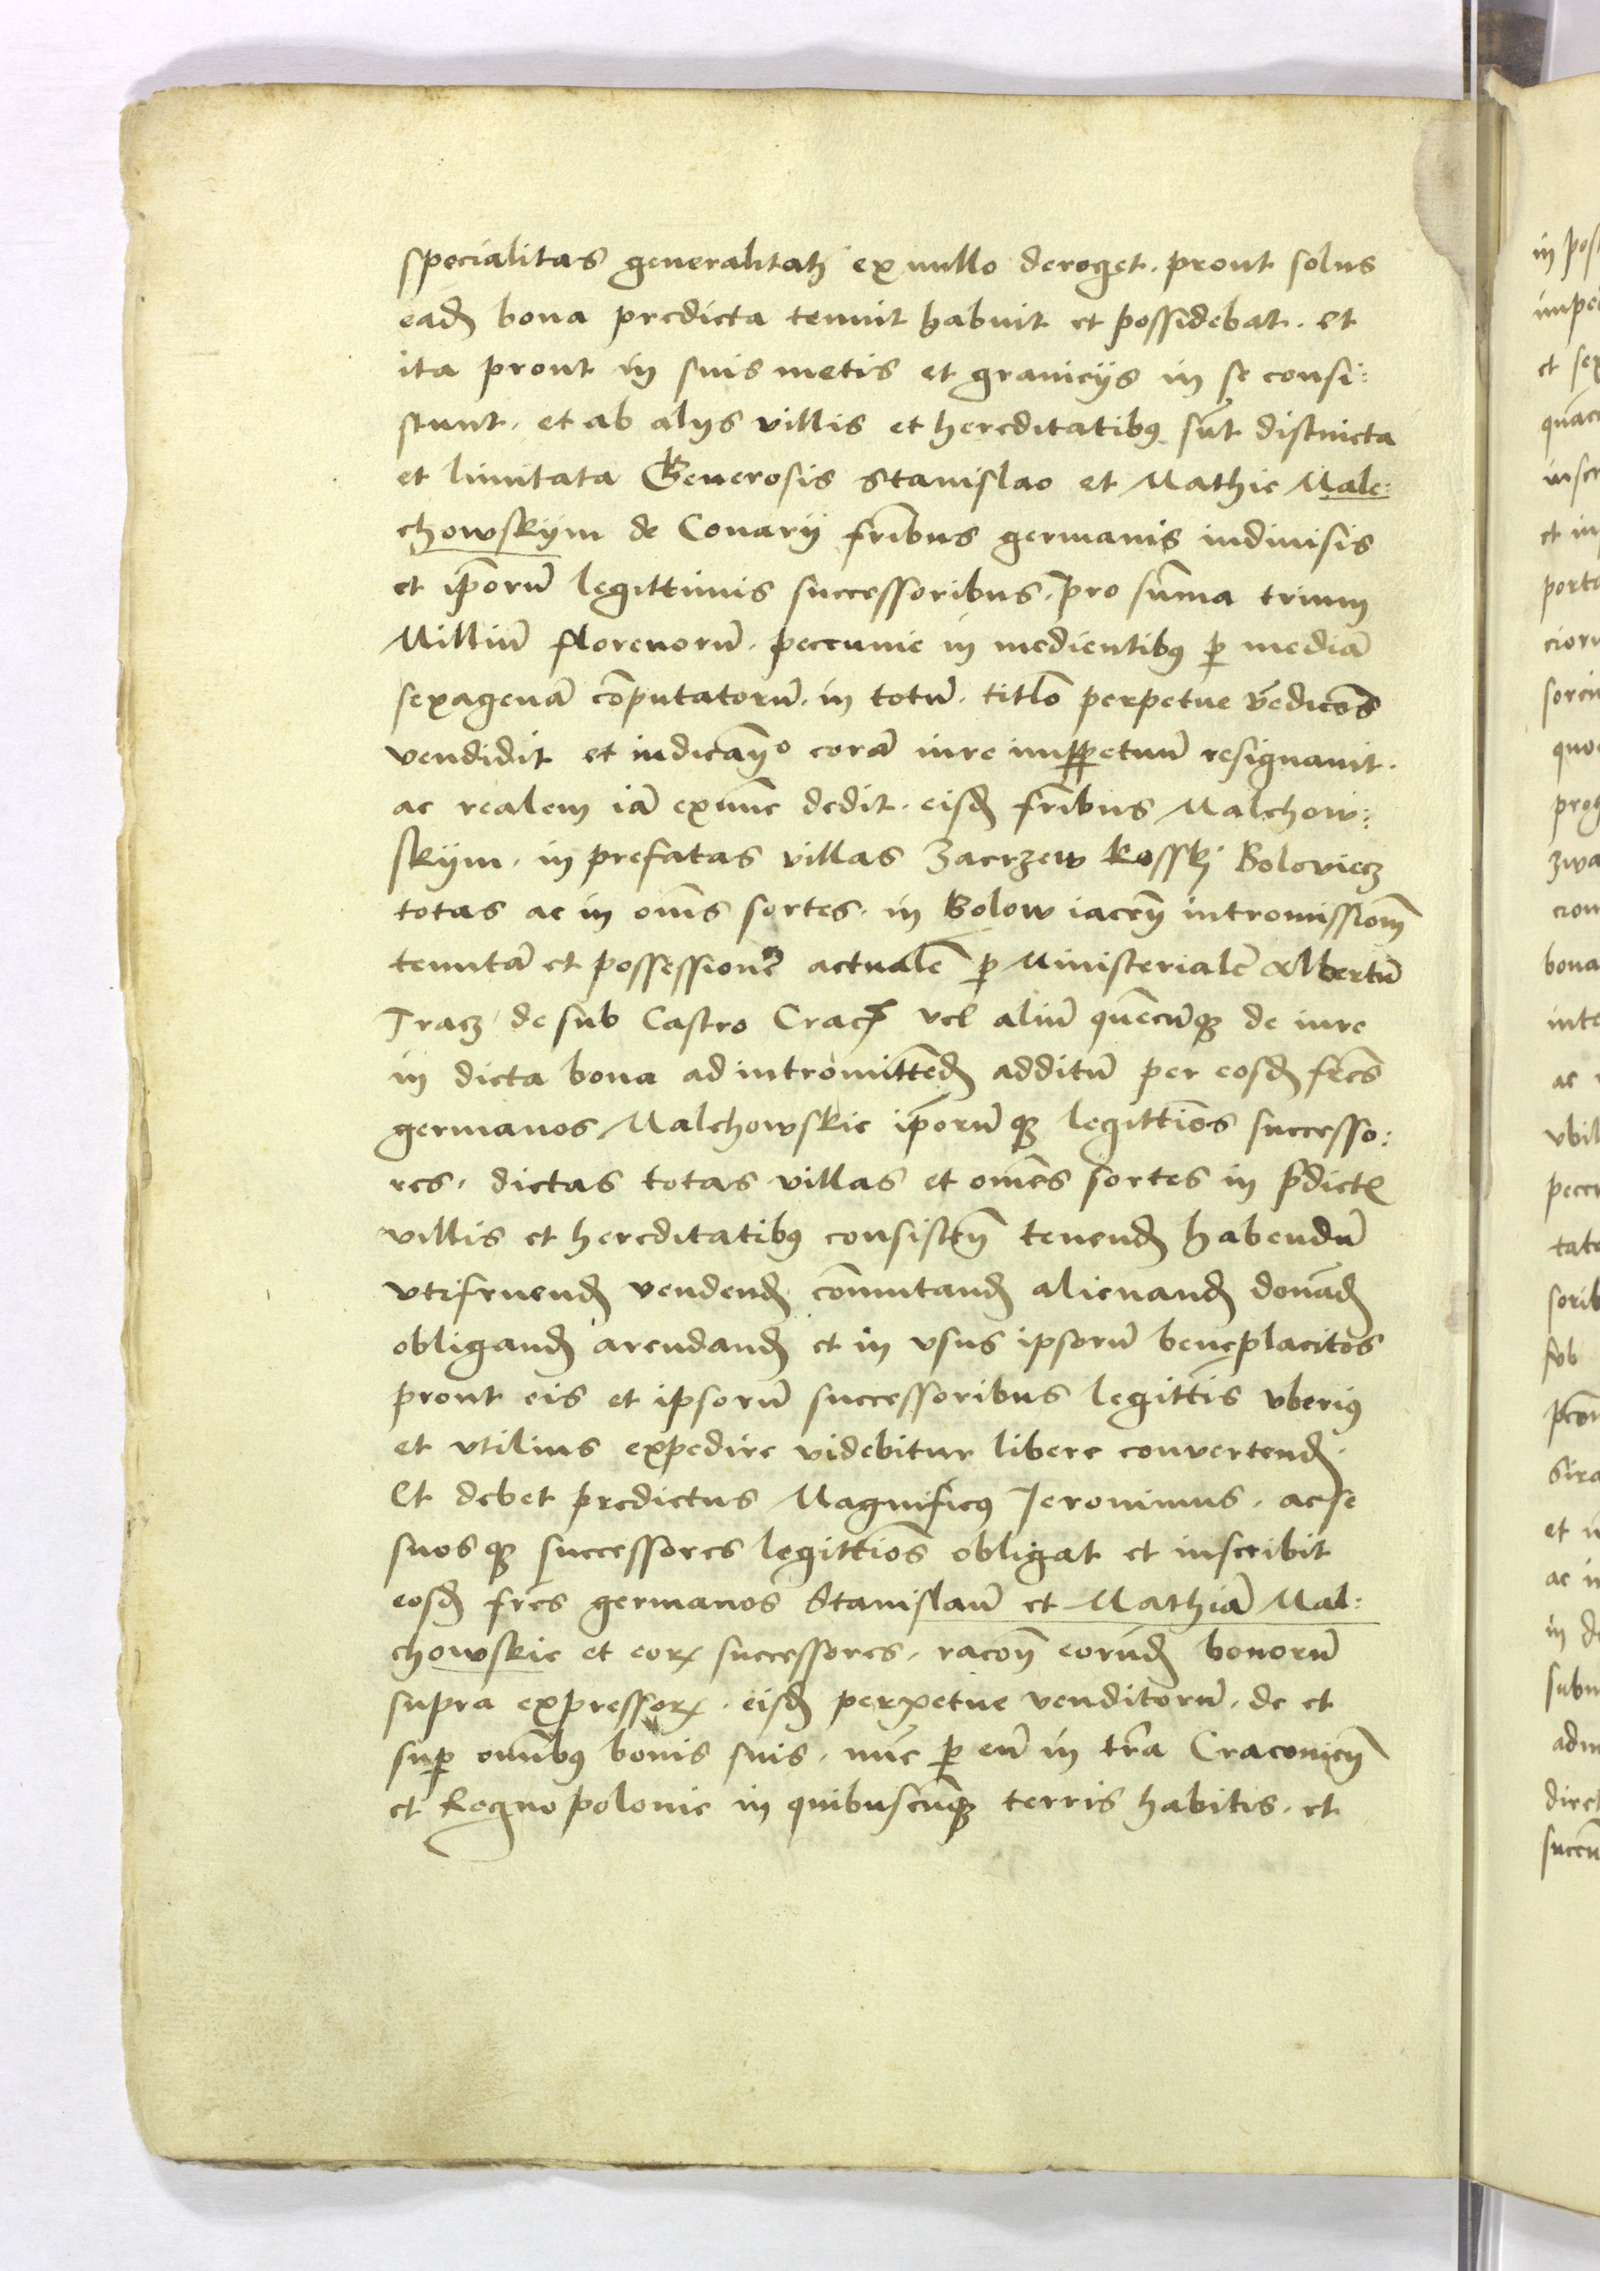 specialitas generalitatꝫ ex nullo deroget. prout solus
eadꝫ bona predicta tenuit habuit et possidebat. et
ita prout in suis metis et granicijs in se consi:
stunt. et ab alijs villis et hereditatibꝰ sūt distincta
et limitata Generosis Stanislao et Mathie Male:
chowskijm de Conarij fr̄ibus germanis indiuisis
et ip̄orū legittimis successoribus. pro sūma trium
Milliū florenorū. peccunie in medientibꝰ ꝑ mediā
sexagenā cōputatorū. in totū. titl̄o perpetue vēdicōīs
vendidit et iudican̄º corā iure imꝑpetuū resignauit.
ac realem iā exnunc dedit. eisdꝫ fr̄ibus Malchow:
skijm. in prefatas villas Zacrzew Rosskj Boloviecz
totas ac in om̄s sortes. in Bolow iacen̄ intromissionꝫ
tenutā et possessionē actualē ꝑ Ministerialē Albertū
Tracz de sub Castro Crac̄ vel aliū quēcūqꝫ de iure
in dicta bona ad intromittēdꝫ additū per eosdꝫ fr̄es
germanos Malchowskie ip̄orūqꝫ legittīos successo:
res. dictas totas villas et om̄es sortes in p̄dictꝭ
villis et hereditatibꝰ consisten̄ tenendꝫ habendū
vtifruendꝫ vendendꝫ cōmutandꝫ alienandꝫ donādꝫ
obligandꝫ arendandꝫ et in vsus ipsorū beneplacitos
prout eis et ipsorū successoribus legittīs vberiꝰ
et vtilius expedire videbitur libere convertendꝫ.
Et debet predictus Magnificꝰ Jeronimus. ac se
suosqꝫ successores legittīos obligat et inscribit
eosdꝫ fr̄es germanos Stanislaū et Mathiā Mal:
chowskie et eoꝝ successores. racōn̄ eorūdꝫ bonorū
supra expressoꝝ. eisdꝫ perpetue venditorū. de et
suꝑ omībꝰ bonis suis. nūc ꝑ eū in tr̄a Cracouien̄
et Regno polonie in quibuscūqꝫ terris habitis. et